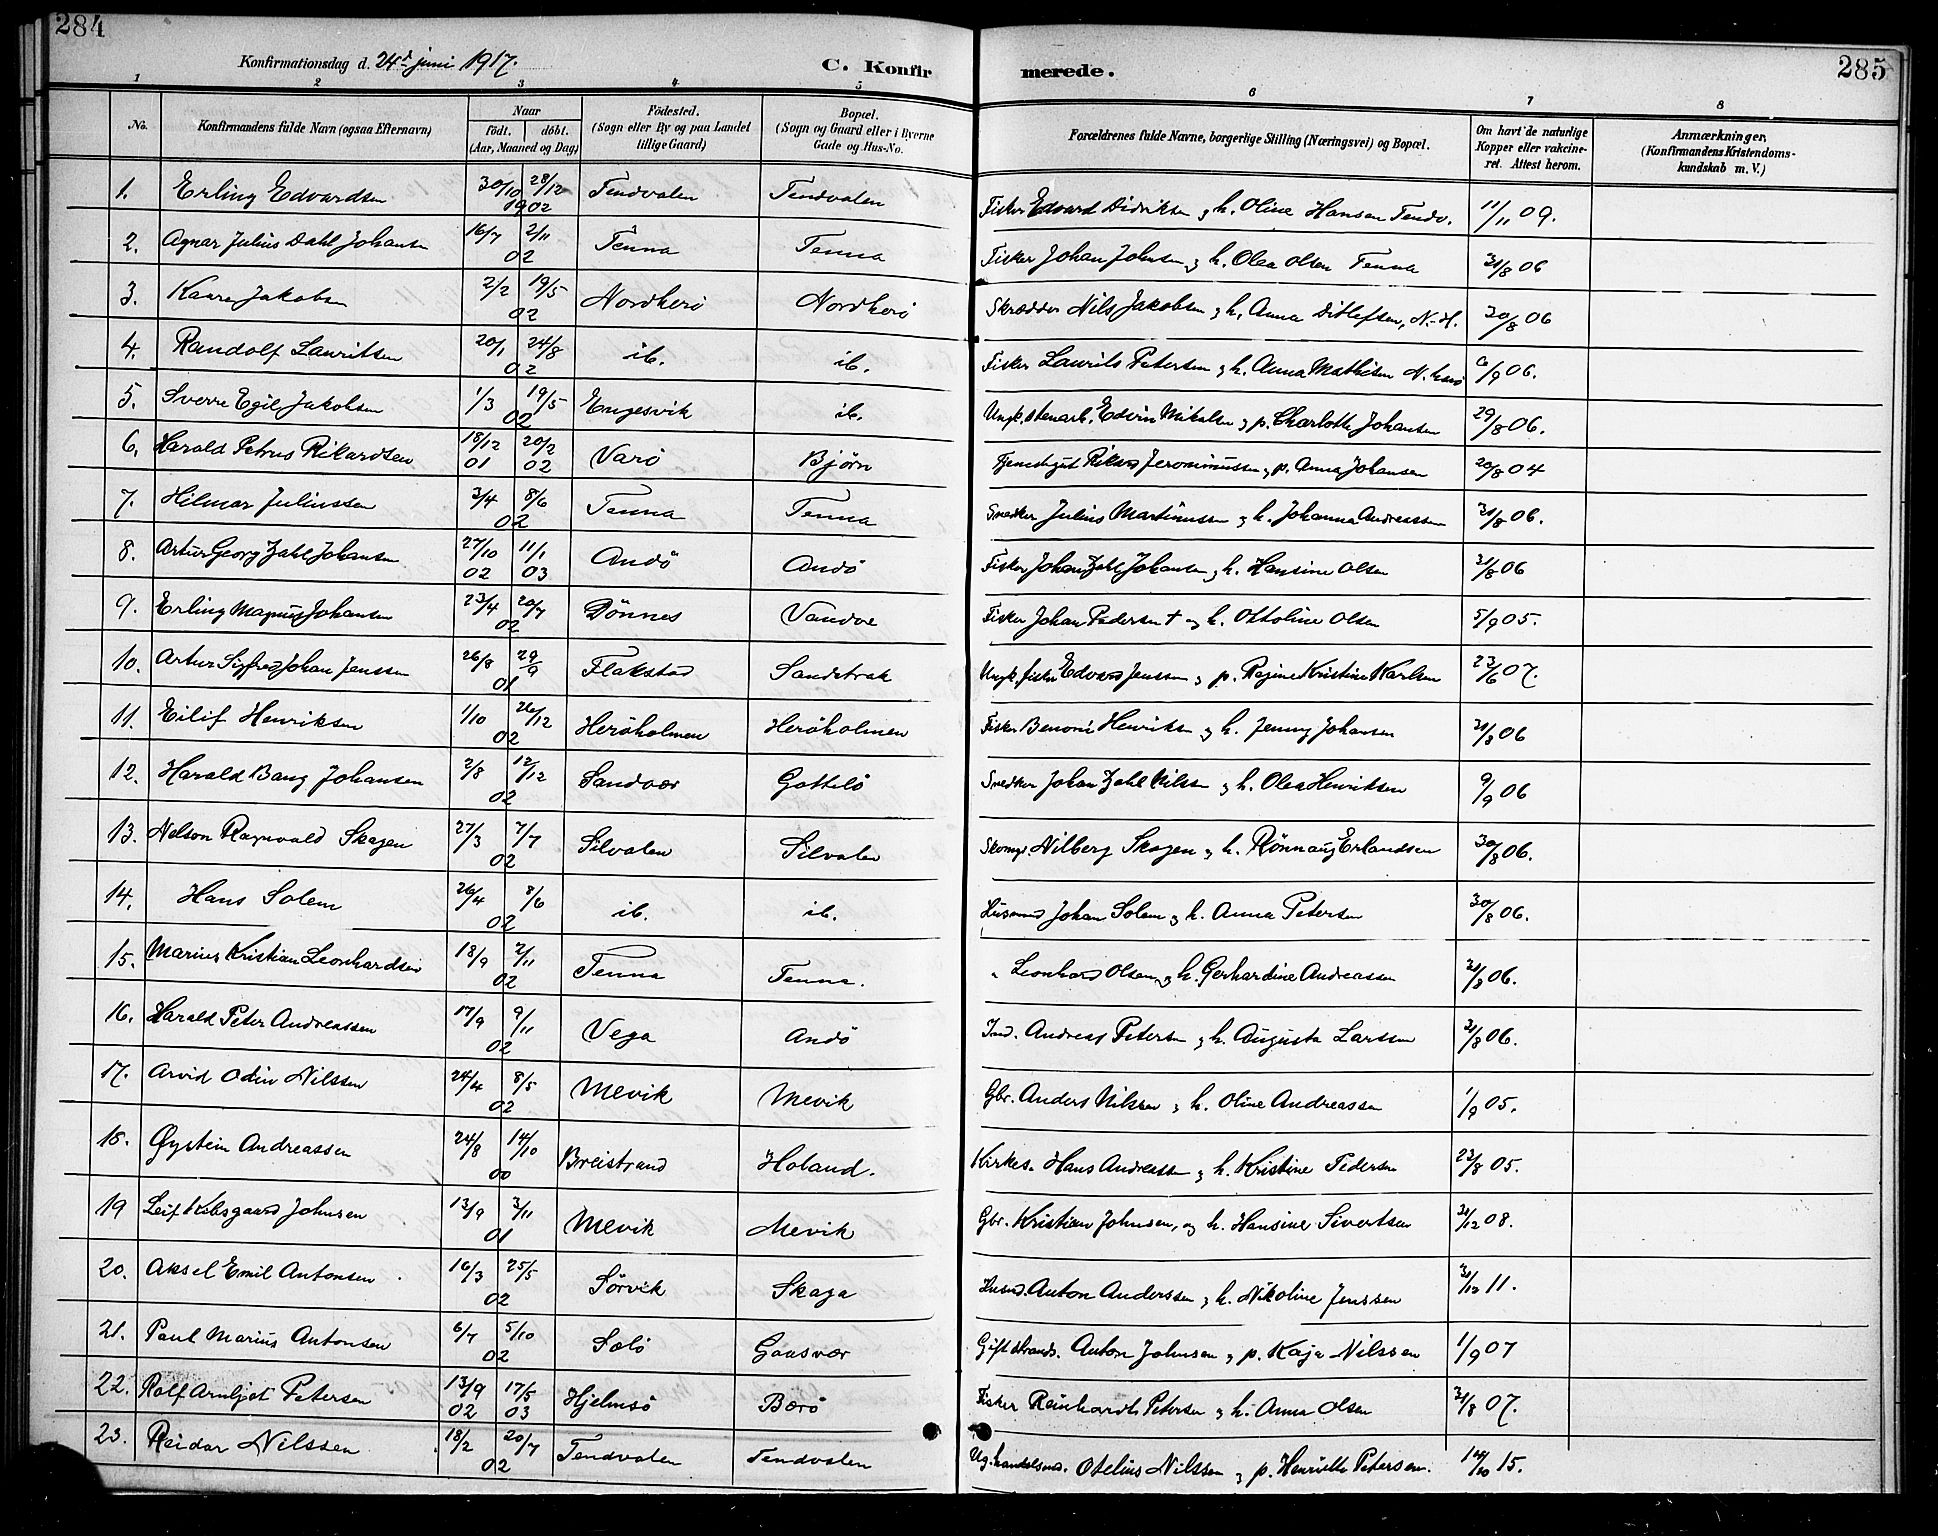 284
Konfirmationsdag d. 24de juni 1917.
C. Konfirmerede.
285
1 2 3 4 5 6 7 8
No. | Konfirmandens fulde Navn (ogsaa Efternavn) | Naar födt. döbt. (Aar, Maaned og Dag) | Födested. (Sogn eller By og paa Landet tillige Gaard) | Bopæl. (Sogn og Gaard eller i Byerne Gade og Hus-No. | Forældrenes fulde Navne, borgerlige Stilling (Næringsvei) og Bopæl. | Om havt de naturlige Kopper eller vakcineret. Attest herom. | Anmærkninger. (Konfirmandens Kristendomskundskab m. V.)
1. Erling Edvardsen 30/10 28/12 1902 Tendvalen Tendvalen Fisker Edvard Didriksen og h. Oline Hansen Tendv. 11/11 09.
2. Agnar Julius Dahl Johansen 16/7 2/11 02 Tenna Tenna Fisker Johan Johnsen og h. Olea Olsen Tenna 31/8 06
3. Kaare Jakobsen 2/2 19/5 02 Nordherö Nordherö Skrædder Nils Jakobsen og h. Anna Ditlefsen, N.-H. 30/8 06
4. Randolf Lauritsen 20/1 24/8 02 ib. ib. Fisker Laurits Petersen og h. Anna Mathisen N. herö 6/9 06.
5. Sverre Egil Jakobsen 1/3 19/5 02 Engesvik ib. Ungk. stenarb. Edvin Mikalsen og p. Charlotte Johansen 29/8 06.
6. Harald Petrus Rikardsen 18/12 01 20/2 02 Varö Bjørn Tjenestegut Rikard Jeronimussen og p. Anna Johansen 20/8 04
7. Hilmar Juliussen 3/4 8/6 02 Tenna Tenna Snedker Julius Martinussen og h. Johanna Andreassen 31/8 06.
8. Artur Georg Zahl Johansen 27/10 02 11/1 03 Andö Andö Fisker Johan Zahl Johansen og h. Hansine Olsen 31/8 06
9. Erling Magnus Johansen 23/4 20/7 02 Dönnes Vandve Fisker Johan Pedersen † og h. Ottoline Olsen 5/9 05.
10. Artur Sigfred Johan Jenssen 26/8 29/9 01 Flakstad Sandstrak Ungk. fisker Edvard Jenssen og p. Regine Kristine Karlsen 23/6 07.
11. Eilif Henriksen 1/10 26/12 02 Heröholmen Heröholmen Fisker Benoni Henriksen og h. Jenny Johansen 31/8 06
12. Harald Bang Johansen 2/8 12/12 02 Sandvær Gottelö Snedker Johan Zahl Nilssen og h. Olea Henriksen 9/9 06
13. Nelson Ragnvald Skagen 27/3 7/7 02 Silvalen Silvalen Skomgr. Nilberg Skagen og h. Rønnaug Erlandsen 30/8 06.
14. Hans Solem 26/4 8/6 02 ib. ib. Husmand Johan Solem og h. Anna Petersen 30/8 06.
15. Marius Kristian Leonhardsen 18/9 2/11 02 Tenna Tenna. " Leonhard Olsen og h. Gerhardine Andreassen 31/8 06.
16. Harald Peter Andreassen 17/9 9/11 02 Vega Andö Ind. Andreas Petersen og h. Augusta Larssen 31/8 06.
17. Arvid Odin Nilssen 24/4 8/5 02 Mevik Mevik Gbr. Anders Nilssen og h. Oline Andreassen 1/9 05.
18. Øystein Andreassen 24/8 14/10 00 Breistrand Holand. Kirkes. Hans Andreassen og h. Kristine Pedersen 23/8 05.
19 Leif Kilsgaard Johnsen 13/9 3/11 01 Mevik Mevik Gbr. Kristian Johnsen, og h. Hansine Sivertsen 31/12 08.
20. Aksel Emil Antonsen 16/3 25/5 02 Sörvik Skaga Husmd. Anton Anderssen og h. Nikoline Jenssen 31/12 11.
21. Paul Marius Antonsen 6/7 5/10 02 Solö Gaasvær Gift strands. Anton Johnsen og p. Kaja Nilssen 1/9 07
22. Rolf Arnljot Petersen 13/9 02 17/5 03 Hjelmsö Bærö Fisker Reinhardt Petersen og h. Anna Olsen 31/8 07.
23. Reidar Nilssen 18/2 20/7 02 Tendvalen Tendvalen Ug. handelsmd. Otelius Nilssen og p. Henriette Petersen. 14/10 15.